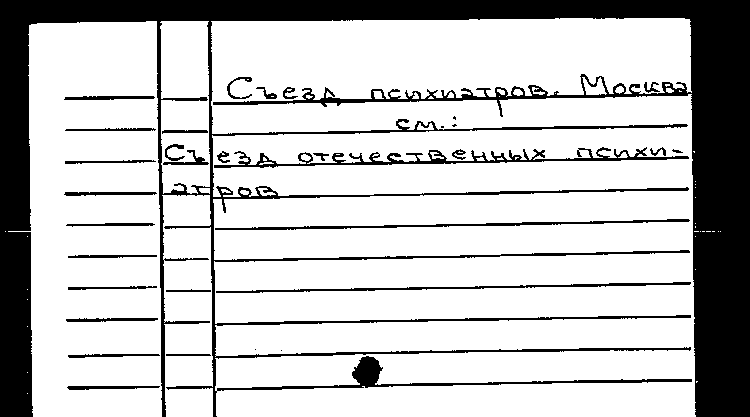 Съезд психиатров. Москва
см.:
Съезд отечественных психи-
атров